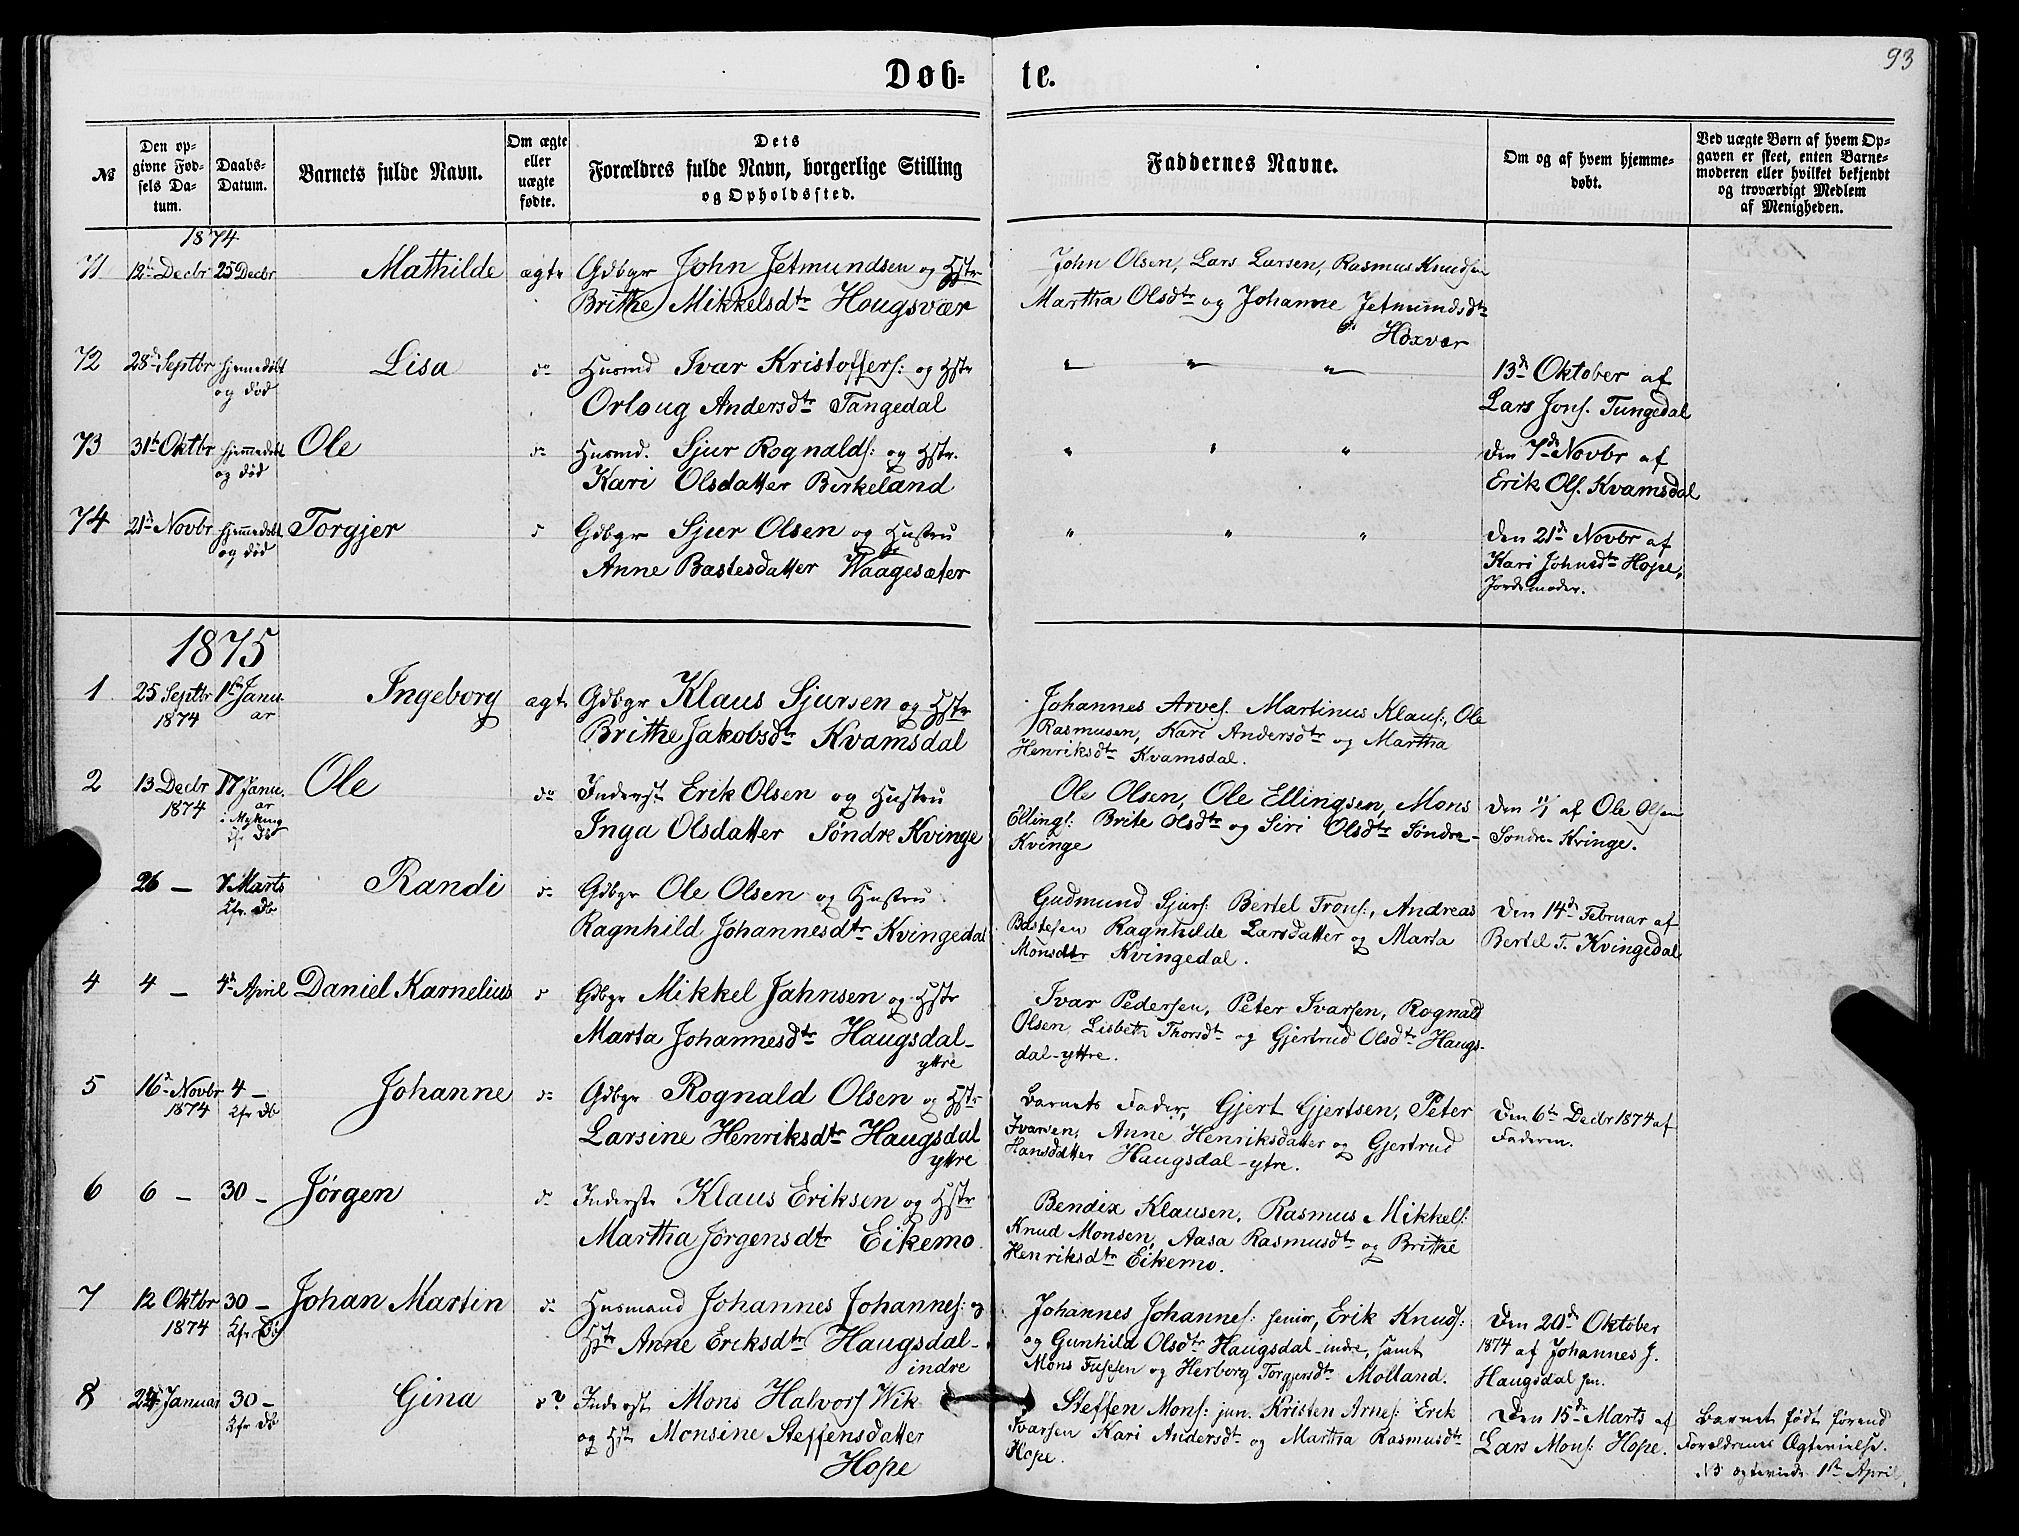 93
Døb- te.
№
Den op-
givne Fød-
sels Da-
tum.
Daabs-
Datum.
Barnets fulde Navn.
Om ægte
eller
uægte
fødte.
Dets
Forældres fulde Navn, borgerlige Stilling
og Opholdssted.
Faddernes Navne.
Om og af hvem hjemme-
døbt.
Ved uægte Børn af hvem Op-
gaven er skeet, enten Barne-
moderen eller hvilket bekjendt
og troværdigt Medlem
af Menigheden.
1874
71 12te Decbr 25 Decbr Mathilde ægte Gdbgr John Jetmundsen og Hstr
Brithe Mikkelsdtr Hougsvær
John Olsen, Lars Larsen, Rasmus Knudsen
Martha Olsdtr og Johanne Jetmundsdtr
Hoxvær
72 28de Septbr hjemmedøbt
og død
Lisa do Husmd Ivar Kristoffers: og Hstr
Orloug Andersdtr Tangedal
" " "
13de Oktober af
Lars Jons. Tungedal
73 31te Oktbr hjemmedøbt
og død
Ole do Husmd. Sjur Rognalds: og Hstr.
Kari Olsdatter Birkeland
" " "
den 7de Novbr af
Erik Ols. Kvamsdal
74 21de Novbr hjemmedøbt
og død
Torgjer Gdbgr Sjur Olsen og Hustru
Anne Bastesdatter Waagesæter
" " "
den 21de Novbr af
Kari Johnsdtr Hope,
Jordemoder.
1875
1 25 Septbr
1874
1ste Janu-
ar
Ingeborg ægte Gdbgr Klaus Sjursen og Hstr
Brithe Jakobsdtr Kvamsdal
Johannes Arves. Martinus Klaus:, Ole
Rasmusen, Kari Andersdtr og Martha
Henriksdtr Kvamsdal.
2 13 Decbr
1874
17 Janu-
ar
i Myking
Ole do Inderst Erik Olsen og Hustru
Inga Olsdatter Søndre Kvinge
Ole Olsen, Ole Ellingsen, Mons
Ellings: Brite Olsdtr og Siri Olsdtr Søndre-
Kvinge
den 1/1 af Ole Olsen
Søndre-Kvinge.
26 — 7 Marts
Kfr. Db
Randi do Gdbgr Ole Olsen og Hustru
Ragnhild Johannesdtr Kvingedal
Gudmund Sjurs: Bertel Trons:, Andreas
Bastesen Ragnhilde Larsdatter og Marta
Monsdtr Kvingedal.
Den 14de Februar af
Bertel T. Kvingedal
4 4 — 4de April Daniel Karnelius Gdbgr Mikkel Jahnsen og Hstr
Marta Johannesdtr Haugsdal-
yttre
Ivar Pedersen, Peter Ivarsen, Rognald
Olsen, Lisbeth Thorsdt og Gjertrud Olsdtr Haugs-
dal-yttre.
5 16de Novbr
1874
4 —
Kfr Db
Johanne do Gdbgr Rognald Olsen og Hstr
Larsine Henriksdtr Haugsdal
yttre
Barnets Fader, Gjert Gjertsen, Peter
Ivarsen, Anne Henriksdatter og Gjertrud
Hansdatter Haugsdal-ytre.
Den 6te Decbr 1874 af
Faderen.
6 6 — 30 — Jørgen do Inderste Klaus Eriksen og Hstr
Martha Jørgensdtr Eikemo.
Bendix Klausen, Rasmus Mikkels:
Knud Monsen, Aasa Rasmusdtr og Brithe
Henriksdtr Eikemo.
7 12 Oktbr
1874
30 —
Kfr Db
Johan Martin do Husmand Johannes Johannes: og
Hstr Anne Eriksdtr Haugsdal-
indre
Johannes Johannes: senior, Erik Knuds:
og Gunhild Olsdtr Haugsdal-indre, samt
Mons og Herborg Torgersdtr Molland.
Den 20de Oktober
1874 af Johannes J.
Haugsdal sen.
8 Januar 30 —
Kfr Db
Gina do Inderst Mons Halvors Wik
og Hstr Monsine Steffensdatter
Hope
Steffen Mons: jun. Kristen Arnes: Erik
Ivarsen Kari Andersdt og Martha Rasmusdtr
Hope.
Den 15de Marts af
Lars Mons: Hope.
Barnet født førend
Forældrenes Ægtevielse.
NB ægteviede 1ste April.